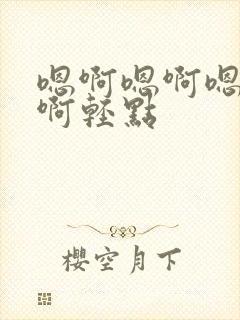 嗯啊嗯啊嗯
啊輕點
櫻空月下